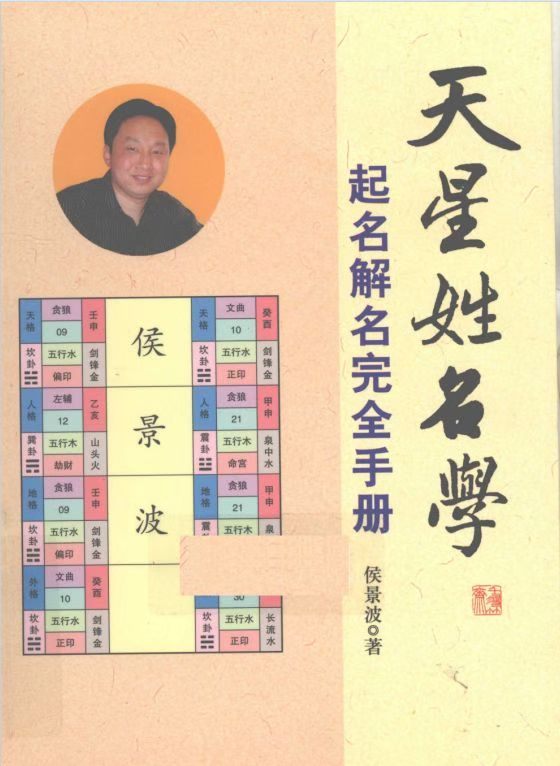 天星姓名學
起名解名完全手册
侯景波◎著
天格 贪狼 壬申
09
坎卦 五行水 剑锋金
偏印
人格 左辅 乙亥
12
巽卦 五行木 山头火
劫财
地格 贪狼 壬申
09
坎卦 五行水 剑锋金
偏印
外格 文曲 癸酉
10
坎卦 五行水 剑锋金
正印
侯
景
波
天格 文曲 癸酉
10
坎卦 五行水 剑锋金
正印
人格 贪狼 甲申
21
震卦 五行木 泉中水
命宫
地格 贪狼 甲申
21
震 五行木 泉
30
坎卦 五行水 长流水
正印